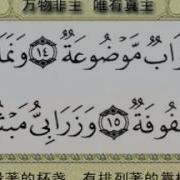 万物非主 唯有真主
وَابٌ مَّوْضُوعَةٌ ١٤ وَنَمَا
فُوفَةٌ ١٥ وَزَرَابِيُّ مَبْثُ
著的杯盏，有排列著的靠